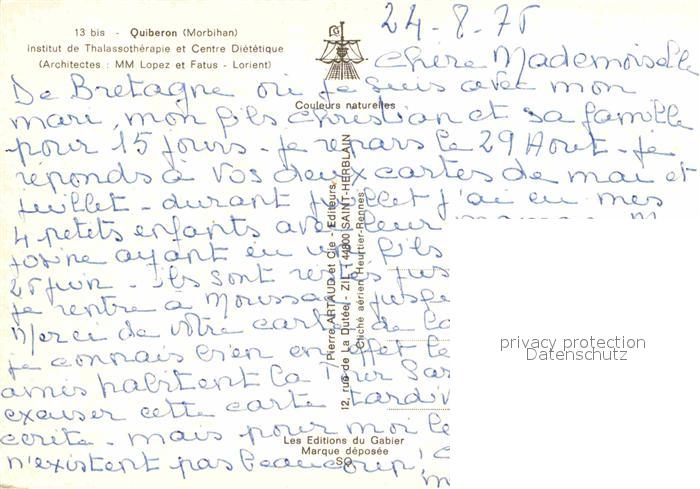 13 bis - Quiberon (Morbihan)
Institut de Thalassothérapie et Centre Diététique
(Architectes : MM Lopez et Fatus - Lorient)
24-8-75
Chère Mademoiselle
De Bretagne où je suis avec mon
Couleurs naturelles
mari, mon fils Christian et sa famille
pour 15 jours - je repars le 29 Août - je
réponds à vos deux cartes de mai et
juillet - durant juillet j'ai eu mes
4 petits enfants avec leur
ayant eu un fils
25 juin - ils sont restés jus
je rentre à Moussa jusqu
Merci de votre carte de la
je connais bien en effet le
amis habitent la Tour Sar
excuser cette carte tardiv
écrite - mais pour moi le
n'existent pas beaucoup !
Pierre ARTAUD et Cie - Editeurs
12, rue de La Dutée - Z.I.L. 44800 SAINT-HERBLAIN
Cliché aérien Heurtier-Rennes
Les Editions du Gabier
Marque déposée
SO
privacy protection
Datenschutz